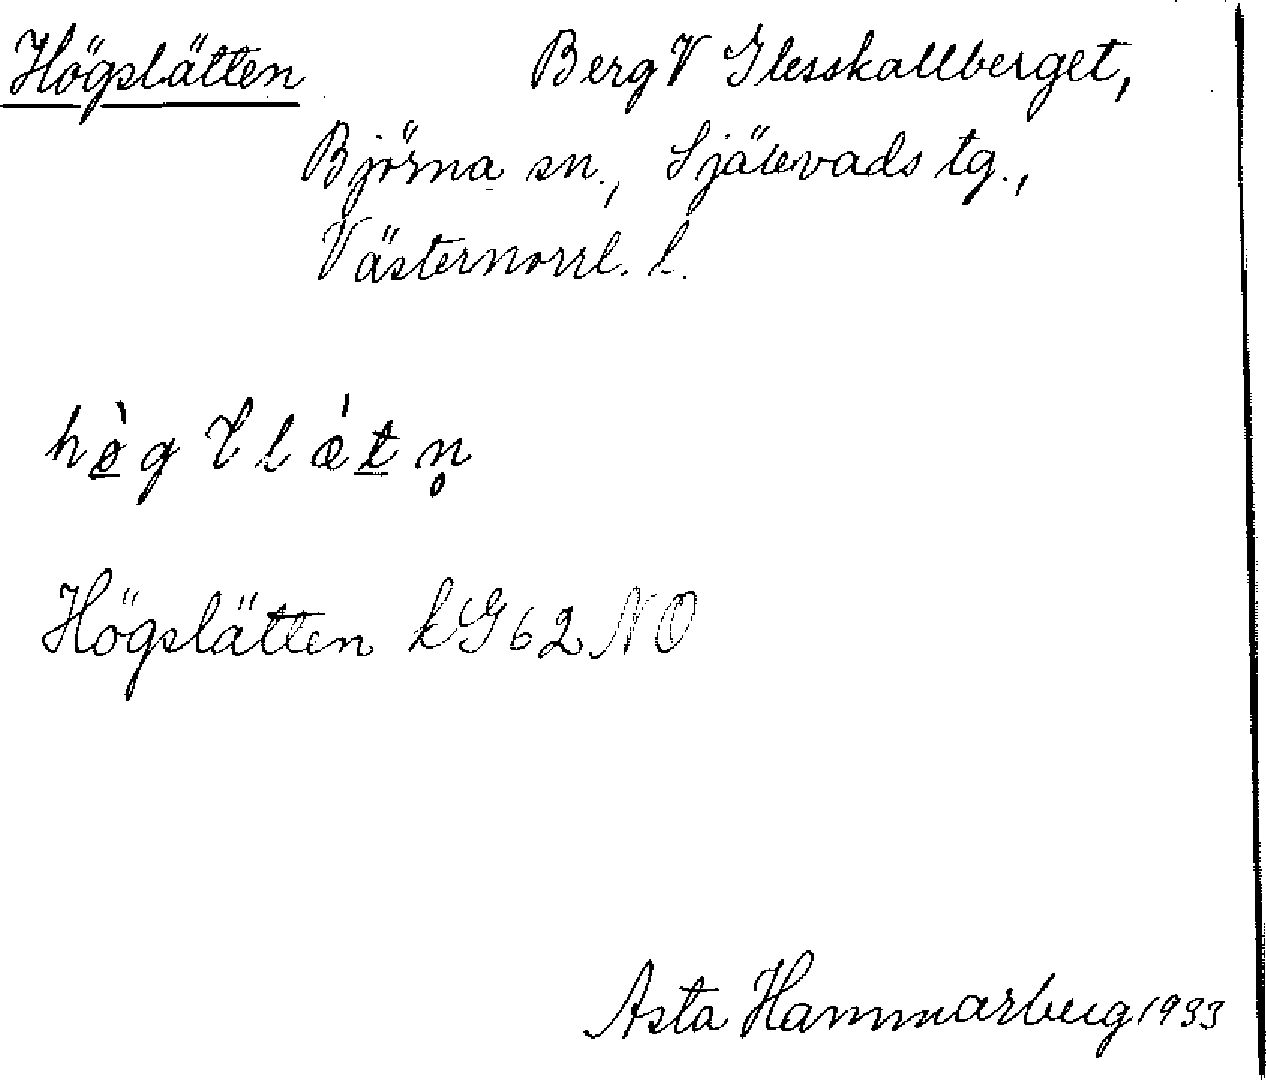 Högslätten Berg V Glesskallberget,
Björna sn., Själevads tg.,
Västernorrl. l.
Högslätten kG62NO
Asta Hammarberg 1933